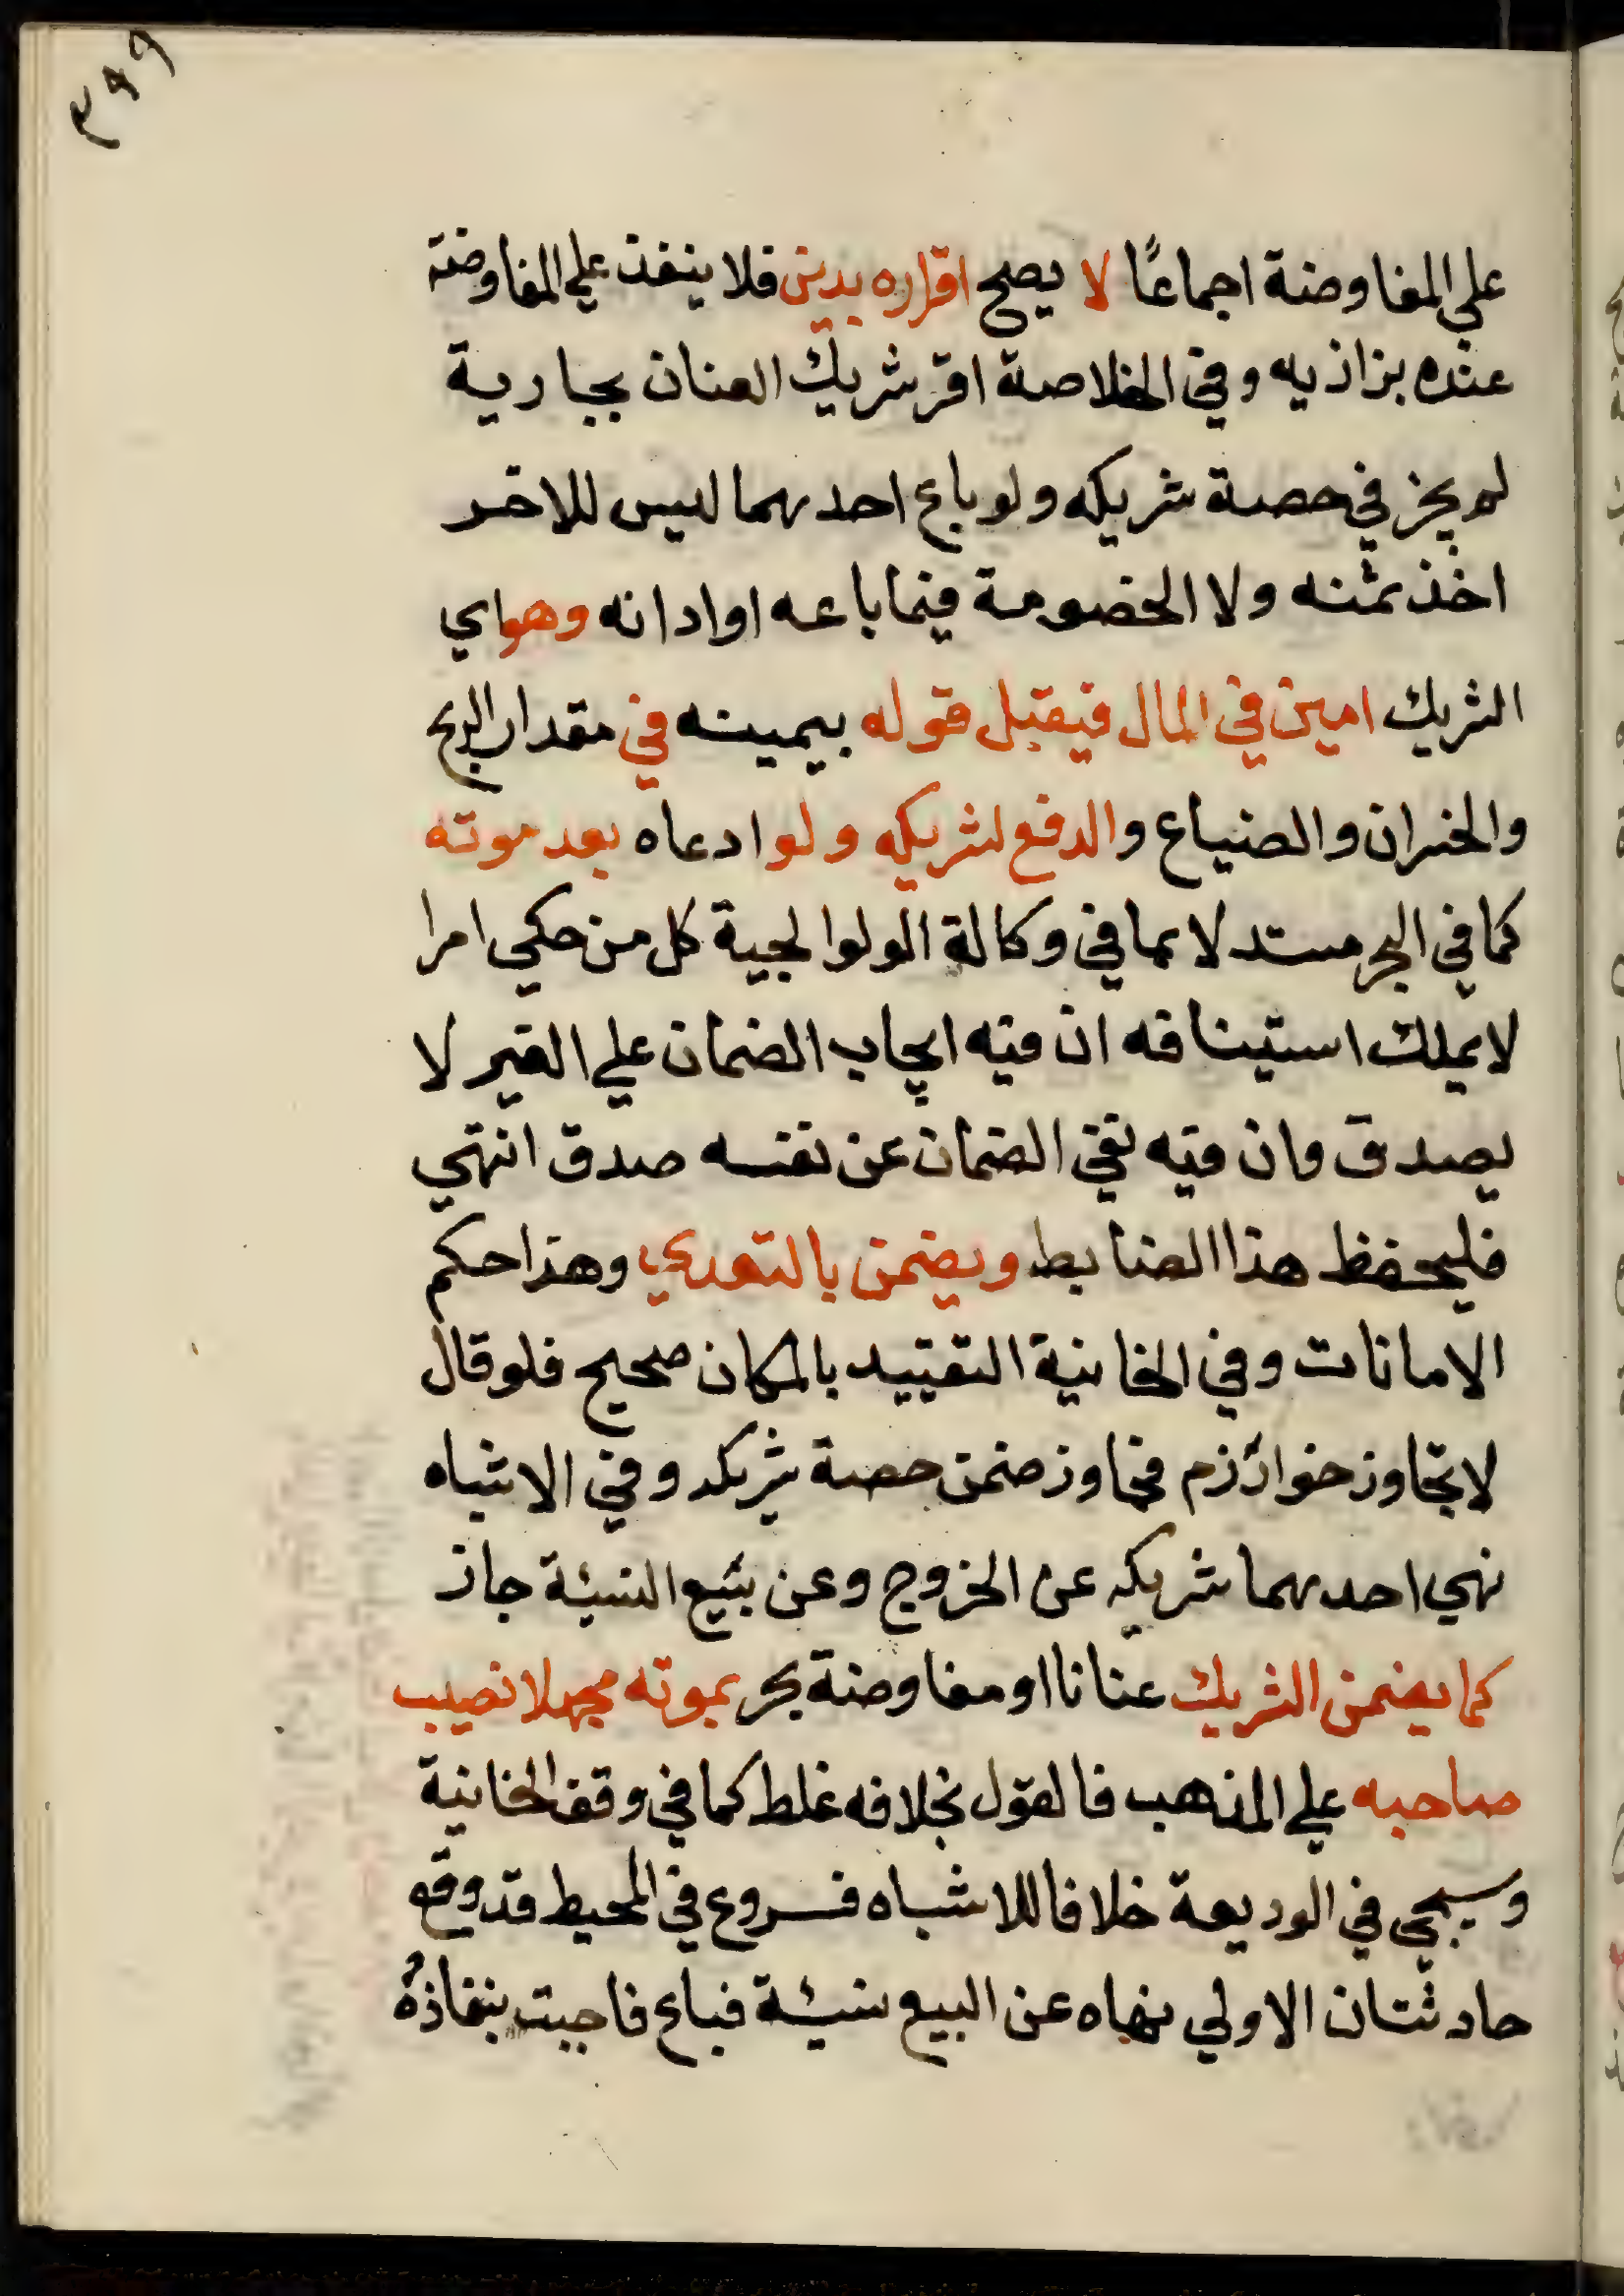 ٣٩٩
علي المفاوضة اجماعًا لا يصح اقراره بدين فلا ينفذ علي المفاوضة
عنده بزازيه وفي الخلاصة اقر شريك العنان بجارية
لم يجز في حصة شريكه ولو باع احدهما ليس للاخر
اخذ ثمنه ولا الخصومة فيما باعه او ادانه وهو اي
الشريك امين في المال فيقبل قوله بيمينه في مقدار الربح
والخسران والضياع والدفع لشريكه ولو ادعاه بعد موته
كما في البحر مستدلا بما في وكالة الولوالجية كل من حكي امرا
لا يملك استينافه ان فيه ايجاب الضمان علي الغير لا
يصدق وان فيه نفي الضمان عن نفسه صدق انتهي
فليحفظ هذا الضابط ويضمن بالتعدي وهذا حكم
الامانات وفي الخانية التقييد بالمكان صحيح فلو قال
لا تجاوز خوارزم فجاوز ضمن حصة شريكه وفي الاشباه
نهي احدهما شريكه عن الخروج وعن بيع النسيئة جاز
كما يضمن الشريك عنانا او مفاوضة بحر بموته مجهلا نصيب
صاحبه علي المذهب فالقول بخلافه غلط كما في وقف الخانية
وسيجي في الوديعة خلافا للاشباه فروع في المحيط قد وقع
حادثتان الاولي نهاه عن البيع نسيئة فباع فاجبت بنفاذهُ